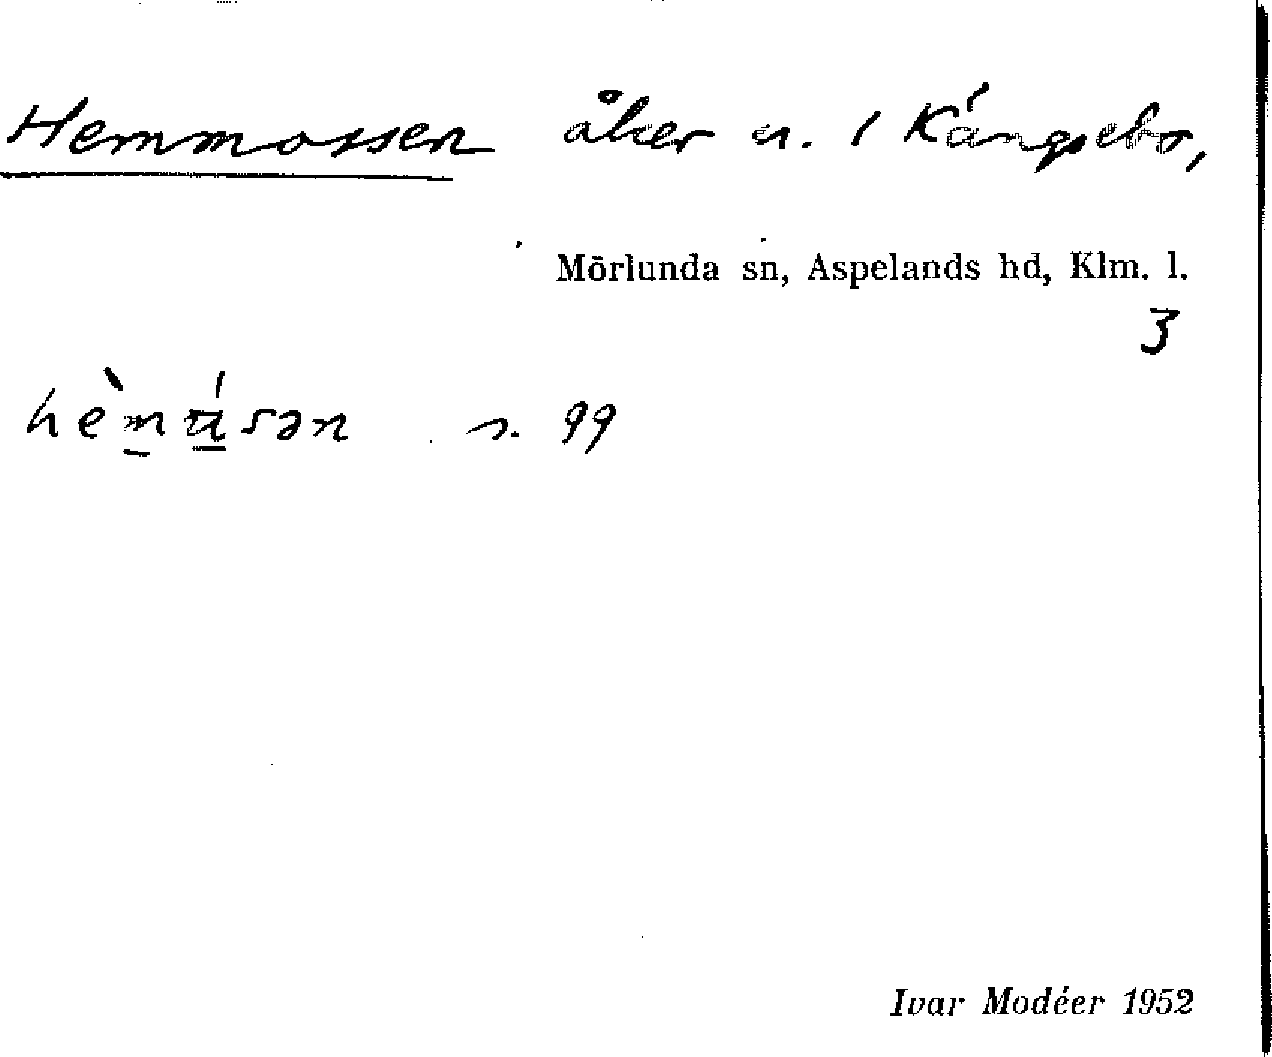 Hemmossen åker n. 1 Kångsebo,
Mörlunda sn, Aspelands hd, Klm. l.
3
s. 99
Ivar Modéer 1952